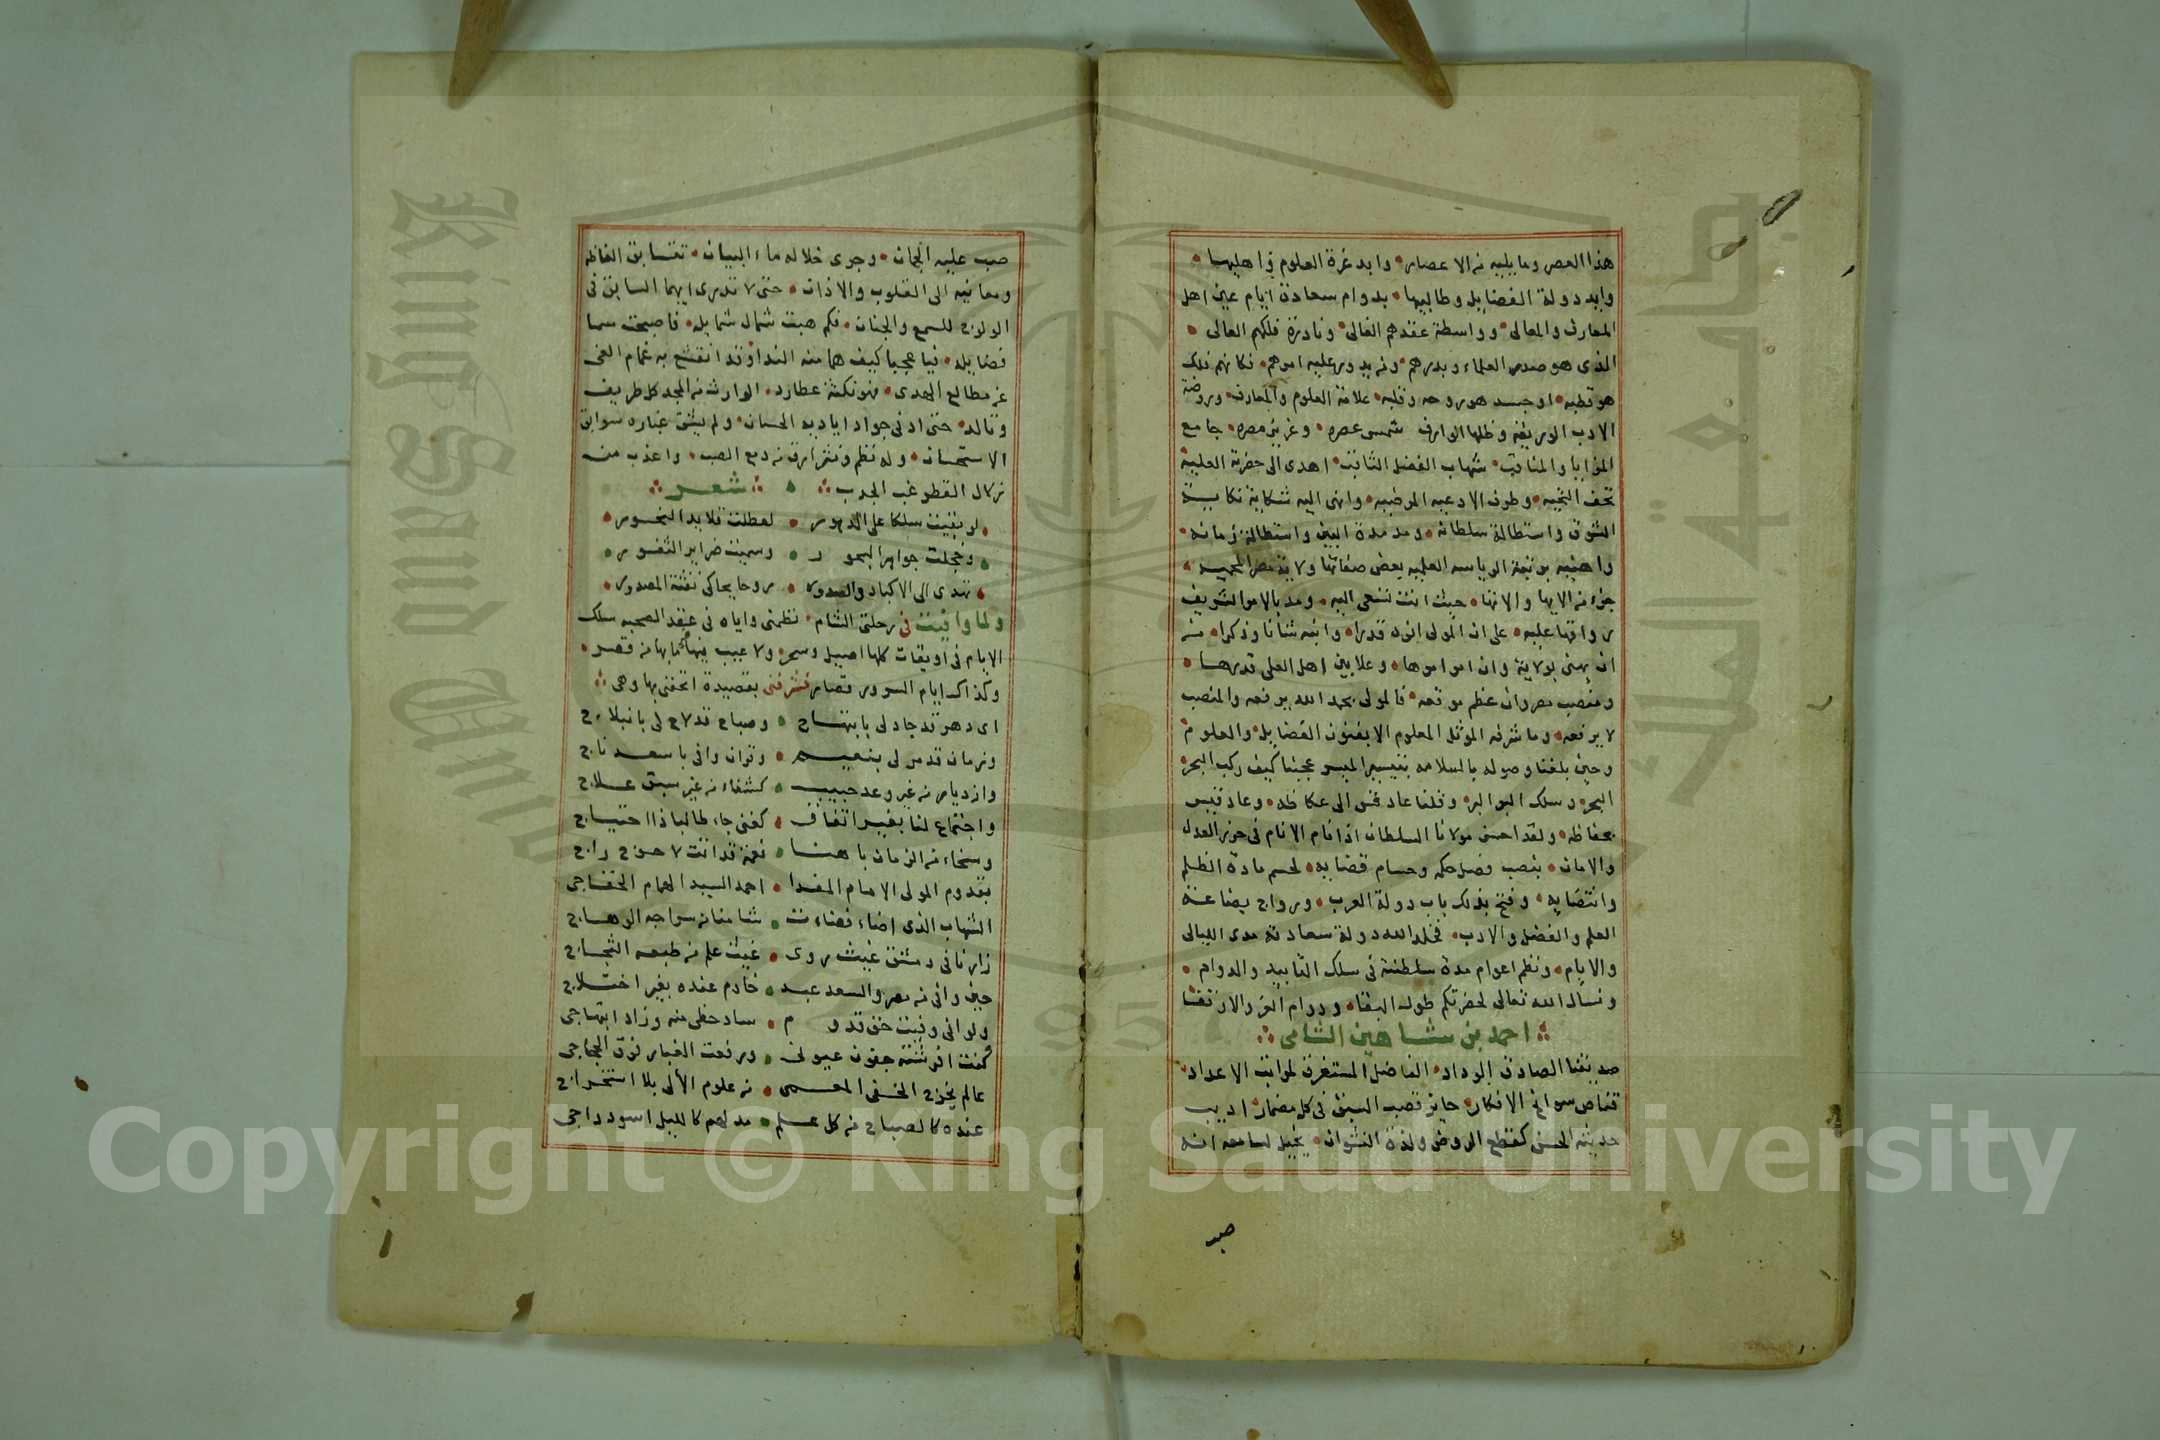 هذا العصر وما يليه من الاعصار وايد غرة العلوم في اهليها
وايد دولة الفضايل وطالبيها بدوام سعادة ايام عين اهل
المعارف والمعالى وواسطة عقدهم الغالى ونادرة فلكهم العالى
الذى هو صدر العلماء وبدرهم ومن يدور عليه امرهم فكانهم فلك
هو قطبه اوجسد هو روحه وقلبه علامة العلوم والمعارف وروضة
الادب الوريفة وظلها الوارف شمس عصره وعزيز مصره جامع
المزايا والمناقب شهاب الفضل الثاقب اهدى الى حضرته العلية
تحف التحيه وطرف الادعيه المرضيه وانهى اليه شكاية نكاية
الشوق واستطالة سلطانه ومد مدة البين واستطالة زمانه
واهنيه برتبة الرياسه العلميه بعض صفاتها ولاية مصر المحميه
جزء من الايها والاتها حيث انت تسعى اليه ومد بالامر الشريف
رواقها عليه على ان المولى انوه قدرا وانبه شانا وذكرا من
ان يهنى بولاية وان امر امرها وعلا بين اهل العلى قدرها
ومنصب مصر وان عظم موقعه فالمولى بحمد الله يرفعه والمنصب
لا يرفعه وما شرفه المؤثل المعلوم الا بفنون الفضايل والعلوم
وحين بلغنا وصوله بالسلامه بتيسير الميسر عجبنا كيف ركب البحر
البحر وسلك البر البر وقلنا عاد قس الى عكاظه وعاد قيس
بحفاظه ولقد احسن مولانا السلطان اذ انام الانام فى حرز العدل
والامان بنصب فضل حكمه وحسام قضايه لحسم مادة الظلم
وانتضايه وفتح بذلك باب دولة العرب ورواج بضاعة
العلم والفضل والادب فخلد الله دولة سعادته مدى الليالى
والايام ونظم اعوام مدة سلطنته فى سلك التاييد والدوام
ونسال الله تعالى لحضرتكم طول البقاء ودوام العز والارتقا
احمد بن شاهين الشامى
صديقنا الصادق الوداد الفاضل المستغرق لمراتب الاعداد
قناص سوانح الافكار حايز قصب السبق فى كل مضمار اديب
حديثه الحسن كقطع الروض ولذة النشوان يخيل لسامعه انه
صب
صب عليه الجمان وجرى خلاله ماء البيان تتسابق الفاظه
ومعانيه الى القلوب والاذان حتى لا تدرى ايهما السابق فى
الولوج للسمع والجنان فكم هبت شمال شمايله فاصبحت سما
فضايله فيا عجبا كيف همامنه الندا وقد انقشع به غمام الغى
عن مطالع الهدى فهو نكتة عطارد الوارث من المجد كل طريف
وتالد حتى ادنى جواد اياديه الحسان ولم يشق غباره سوابق
الاستحسان وله نظم ونثر ارق من دمع الصب واعذب من
زلال القطر غب الجدب شعر
لو بقيت سلكا على الدهور لعطلت قلايد النحور
وخجلت جواهر البحور وسميت ضراير الثغور
تهدى الى الاكباد والصدور روحا يحاكى نفثة المصدور
ولما وافيت فى رحلتى الشام نظمتى واياه فى عقد الصحبه سلك
الايام فى اويقات كلها اصيل وسحر ولا عيب فيها ما بها من قصر
وكذاك ايام السرور قصار فشرفنى بقصيدة اتحفنى بها وهى
اى دهر قد جاد لى بابتهاج وصباح قد لاح لى بانبلاج
وزمان قد مر لى بنعيم وقران وافى باسعد ناج
وازديار من غير وعد حبيب كشفاء من غير سبق علاج
واجتماع لنا بغير اتفاق كغنى جاء طالبا ذا احتياج
وسخاء من الزمان باهنا نعمة قد اتت لاحوج راج
بقدوم المولى الامام المفدا احمد السيد الهمام الخفاجى
الشهاب الذى اضاء فضاءت شامنا من سراجه الوهاج
زارنا فى دمشق غيث روى غيث علم من طبعه الثجاج
حين وافى من مصر والسعد عبد خادم عنده بغير اختلاج
ولو انى وفيت حق قدوم ساد حظى منه وزاد ابتهاجى
كنت افرشته جفون عيونى ورفعت الغبار فوق الحجاجى
عالم يخرج الخفى المعمى من علوم الألى بلا استخراج
عنده كالصباح من كل علم مدلهم كالليل اسود داجى